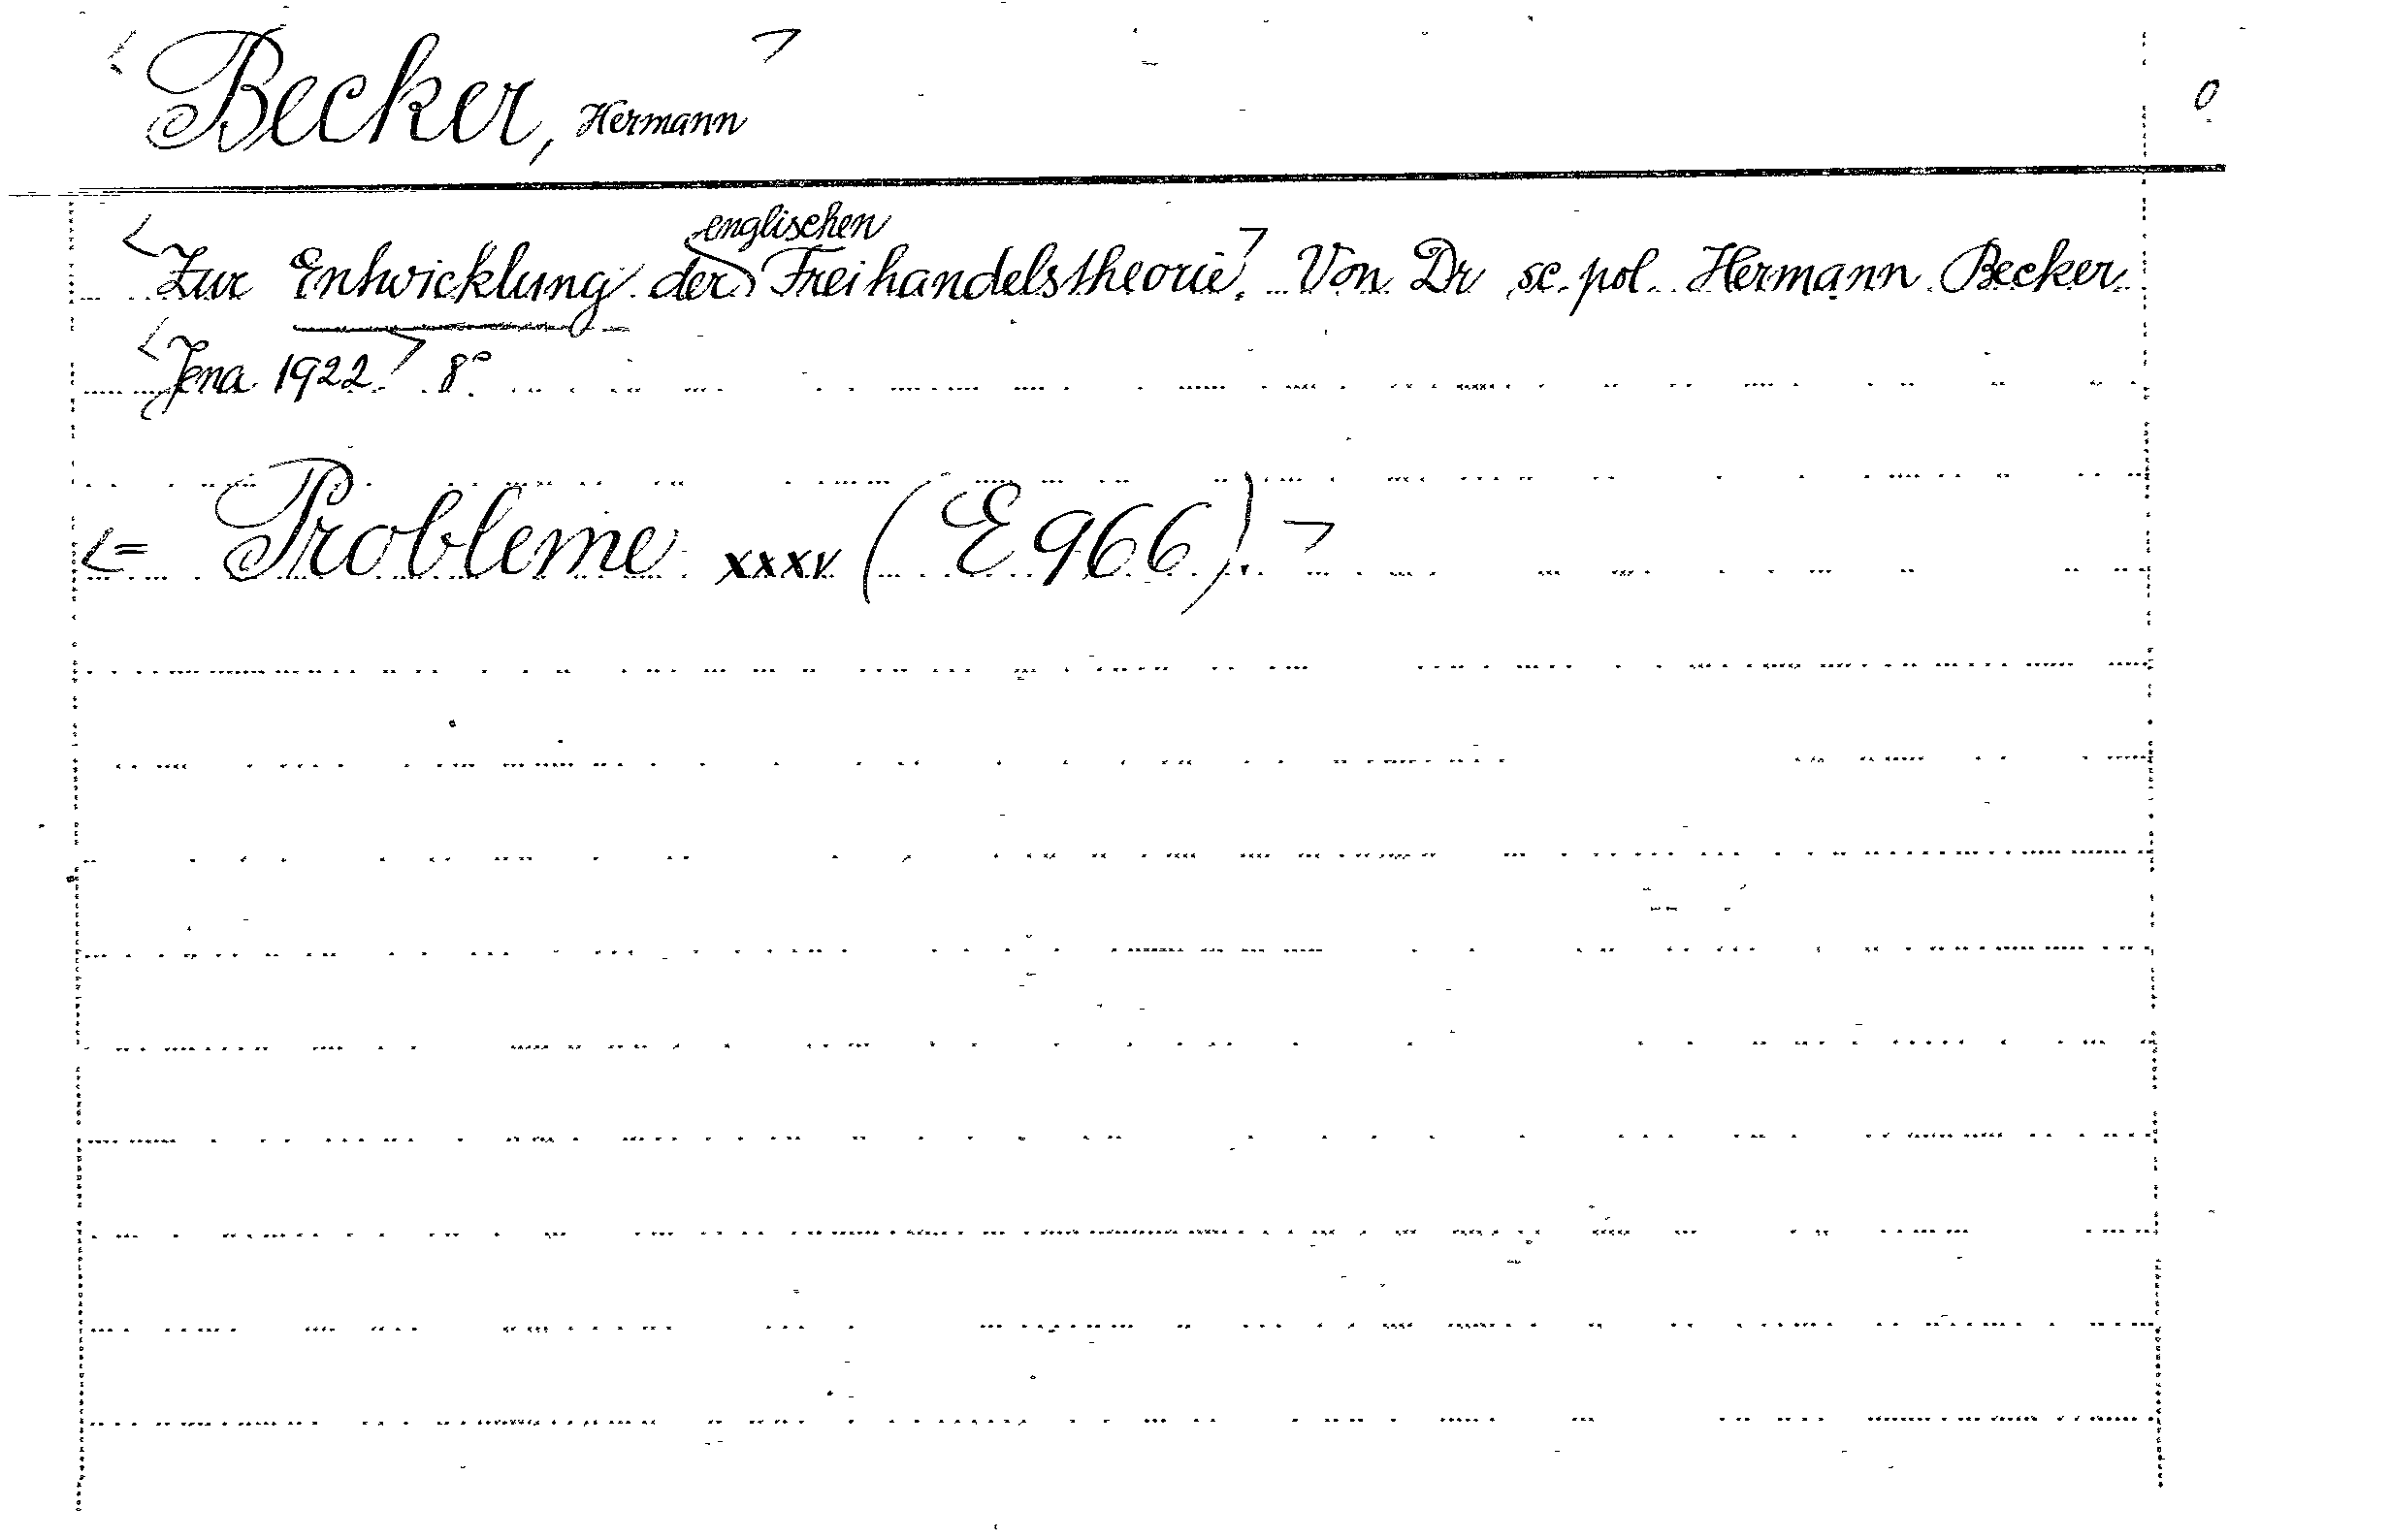 <Becker, Hermann> 0
<Zur Entwicklung der englischen Freihandelstheorie.> Von Dr sc. pol. Hermann Becker.
<Jena 1922.> 8°.
<= Probleme xxxv (E 966).>